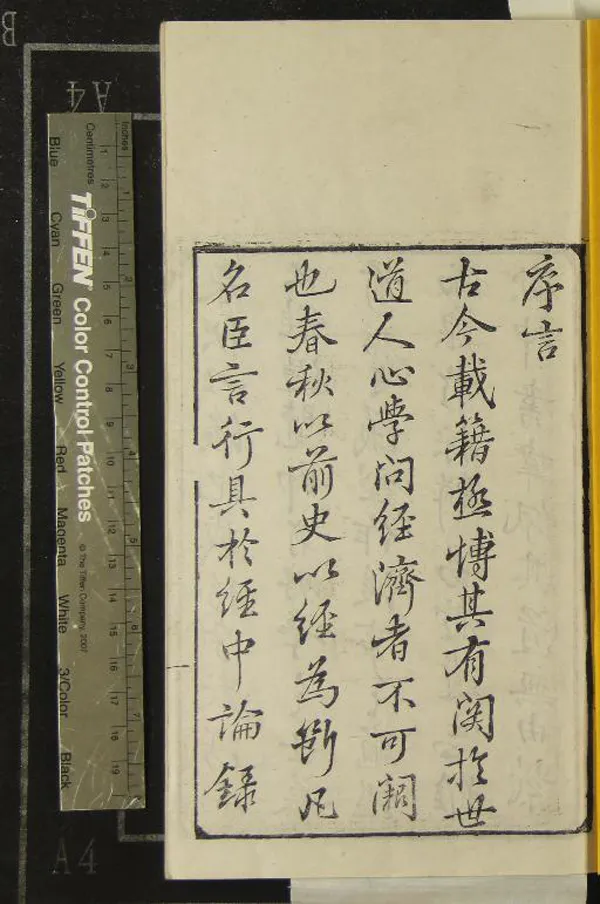 序言
古今載籍極博其有関於世
道人心學问経濟者不可闕
也春秋以前史以經為斷凡
名臣言行具於经中論録
B
A4
A4
Inches
Centimetres
TIFFEN Color Control Patches
© The Tiffen Company, 2007
Blue
Cyan
Green
Yellow
Red
Magenta
White
3/Color
Black
1 2 3 4 5 6 7
1 2 3 4 5 6 7 8 9 10 11 12 13 14 15 16 17 18 19